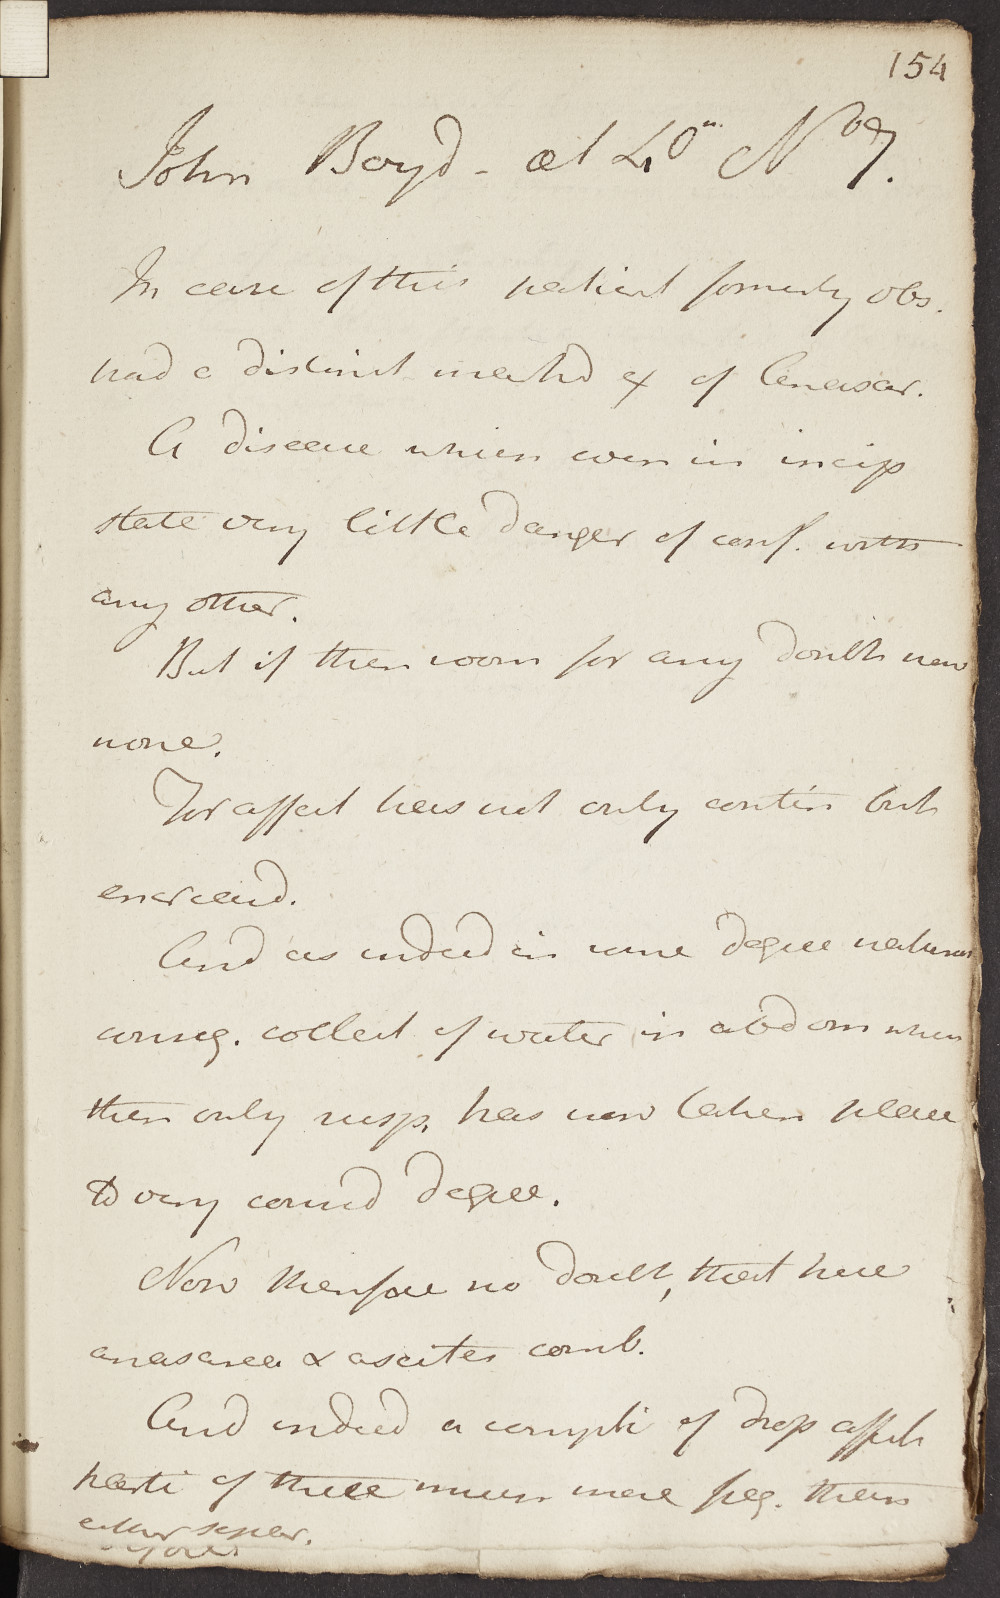 154
John Boyd - æt 40 Nber 7.
In case of this patient formerly obs.
had a distinct marked ex of Anasar.
A disease which even in incip
state very little danger of conf. with
any other.
But if then room for any doubt now
none.
For affect has not only contin but
encreasd.
And as indeed in some degree natural
conseq. collect of water in abdom when
then only susp. has now taken place
to very consid degree.
Now therefore no doubt, that here
anasarca & ascites comb.
And indeed a compli of drop affect
parti of these much more freq. than
either separ.